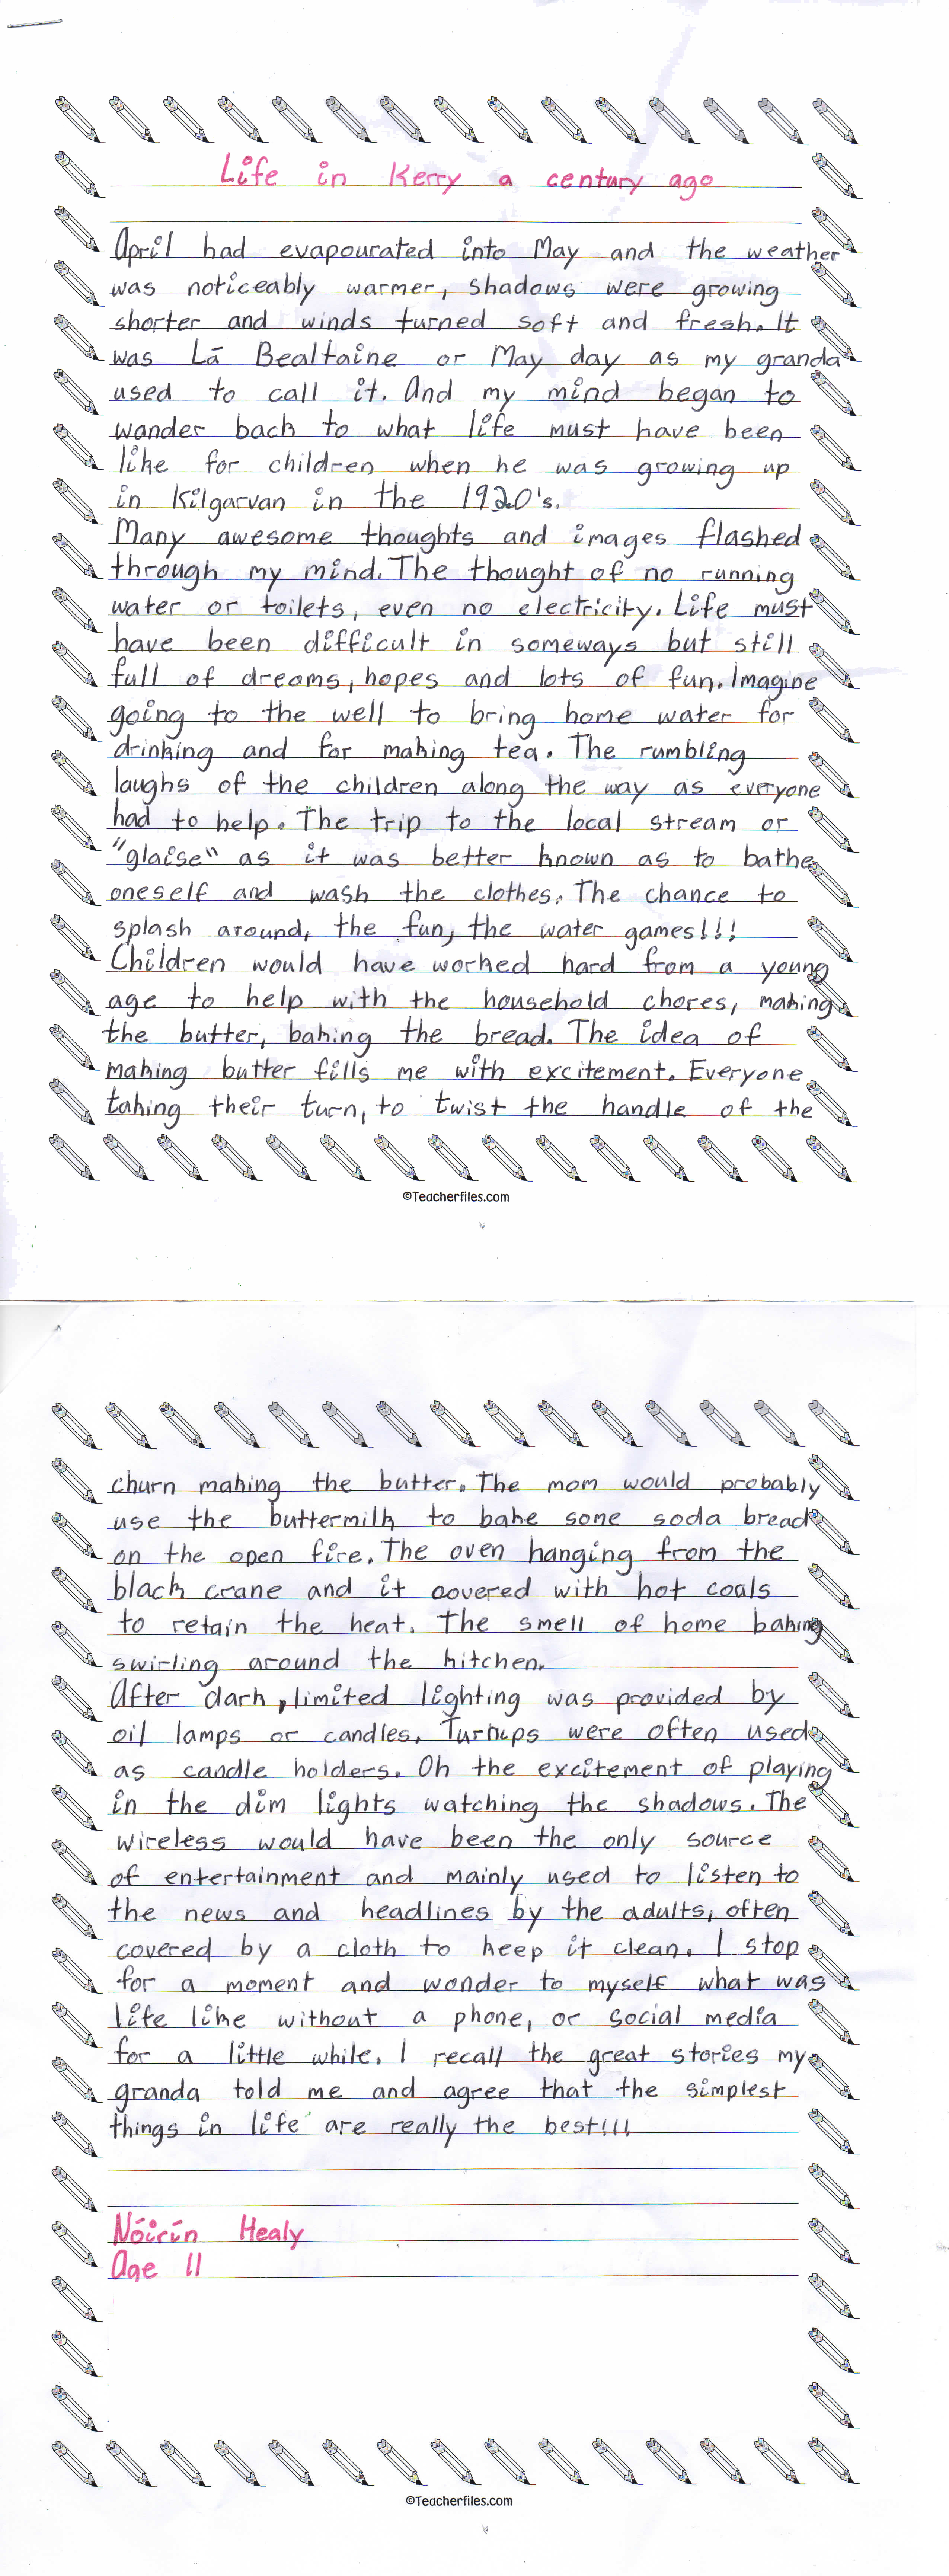 Life in Kerry a century ago
April had evapourated into May and the weather
was noticeably warmer, shadows were growing
shorter and winds turned soft and fresh. It
was Lā Bealtaine or May day as my granda
used to call it. And my mind began to
wander back to what life must have been
like for children when he was growing up
in Kilgarvan in the 1920's.
Many awesome thoughts and images flashed
through my mind. The thought of no running
water or toilets, even no electricity. Life must
have been difficult in someways but still
full of dreams, hopes and lots of fun. Imagine
going to the well to bring home water for
drinking and for making tea. The rumbling
laughs of the children along the way as everyone
had to help. The trip to the local stream or
"glaise" as it was better known as to bathe
oneself and wash the clothes. The chance to
splash around, the fun, the water games!!!
Children would have worked hard from a young
age to help with the household chores, making
the butter, baking the bread. The idea of
making butter fills me with excitement. Everyone
taking their turn, to twist the handle of the
©Teacherfiles.com
churn making the butter. The mom would probably
use the buttermilk to bake some soda bread
on the open fire. The oven hanging from the
black crane and it covered with hot coals
to retain the heat. The smell of home baking
swirling around the kitchen.
After dark, limited lighting was provided by
oil lamps or candles. Turnups were often used
as candle holders. Oh the excitement of playing
in the dim lights watching the shadows. The
wireless would have been the only source
of entertainment and mainly used to listen to
the news and headlines by the adults, often
covered by a cloth to keep it clean. I stop
for a moment and wonder to myself what was
life like without a phone, or social media
for a little while. I recall the great stories my
granda told me and agree that the simplest
things in life are really the best!!!
Nóirín Healy
Age 11
©Teacherfiles.com